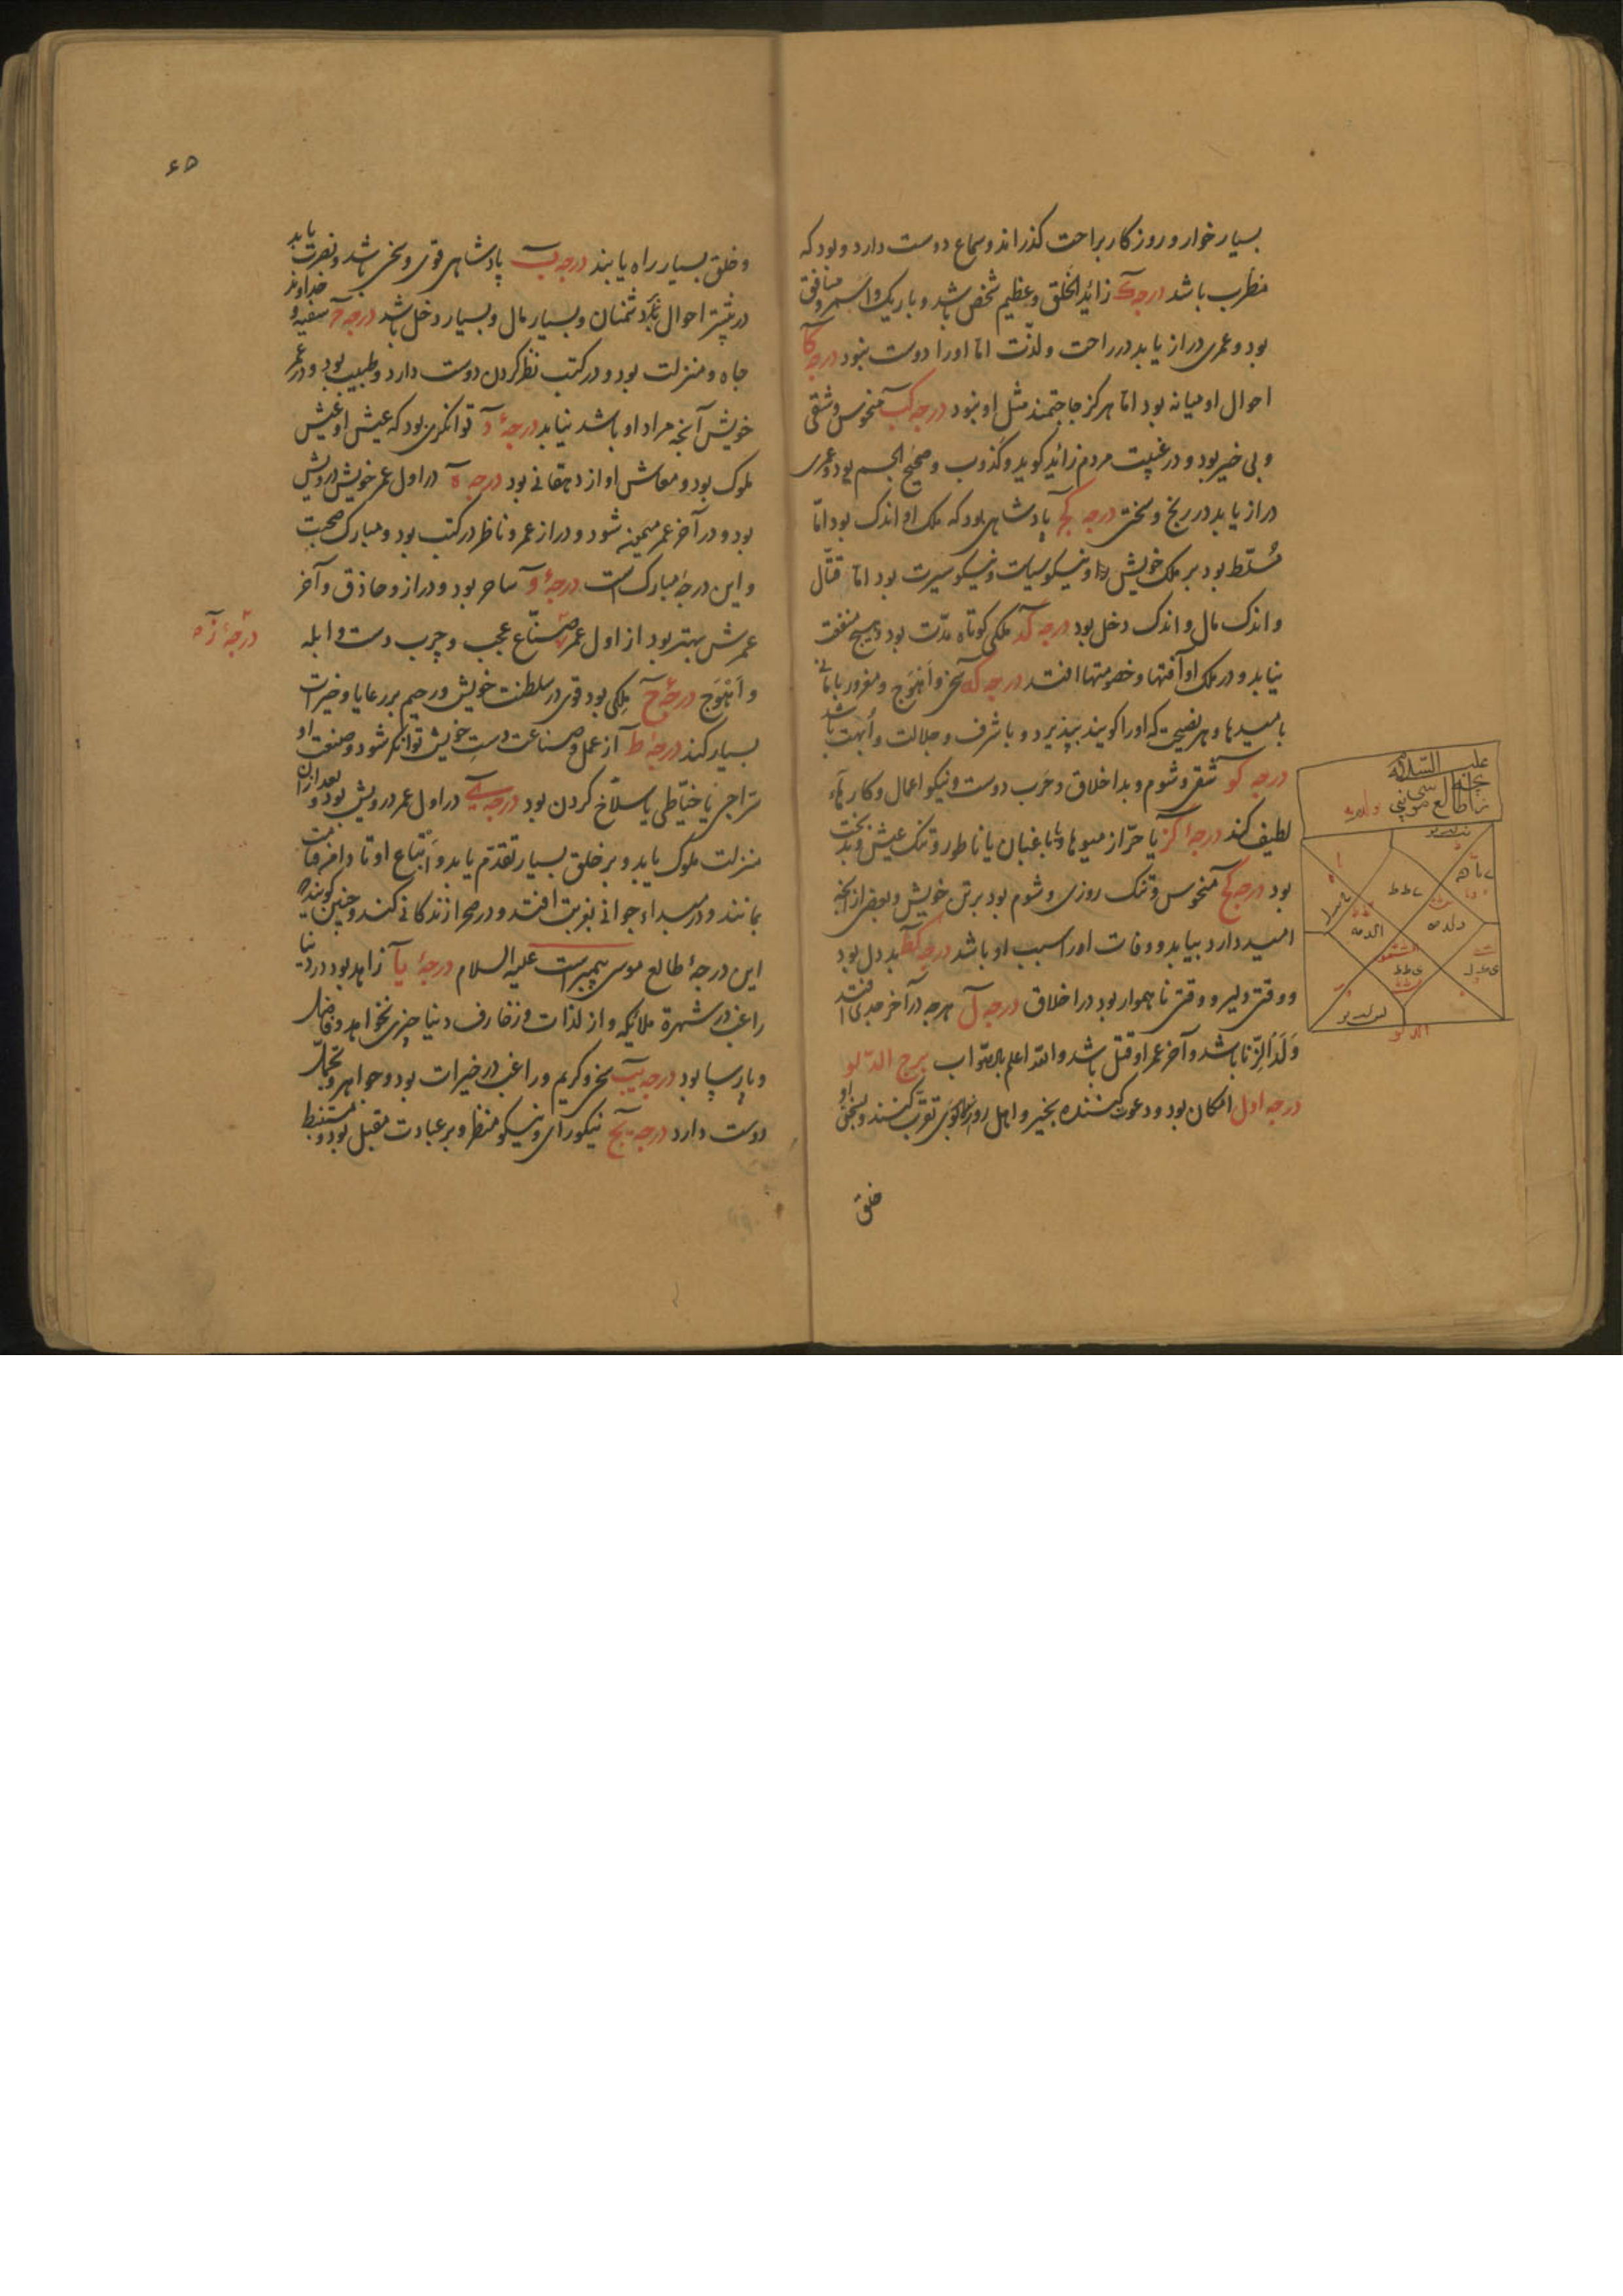 بسیار خوار و روزکار براحت کذراند و سماع دوست دارد و بود که
مطرب باشد درجه ک زائد الخلق و عظیم شخص باشد و باریک و اسمر و منافق
بود و عمری دراز یابد در راحت و لذت اما اورا دوست نبود درجه کا
احوال او میانه بود اما هرکز حاجتمند مثل او نبود درجه کب منحوس و شقی
و بی خیر بود و در غیبت مردم زائد کوید و کذوب و صحیح الجسم بود و عمری
دراز یابد در رنج و سختی درجه کج پادشاهی بود که ملک او اندک بود اما
مسلط بود بر ملک خویش و نیکو سیاست و نیکو سیرت بود اما قتال
و اندک مال و اندک دخل بود درجه کد ملکی کوتاه مدت بود و هیچ منفعت
نیابد و در ملک او آفتها و خصومتها افتد درجه که سخی و اهوج و مغرور بامانی
بامیدها و هر نصیحت که اورا کویند بپذیرد و با شرف و جلالت و ابهت باشد
درجه کو شقی و شوم و بد اخلاق و حرب دوست و نیکو اعمال و کارهاء
لطیف کند درجه کز یا حراز میوها و یا باغبان یا ناطور و تنک عیش و بدبخت
بود درجه کح منحوس و تنک روزی و شوم بود بر تن خویش و بعضی از آنچه
امید دارد بیابد و وفات اورا سبب او باشد درجه کط بد دل بود
و وقتی دلیر و وقتی ناهموار بود در اخلاق درجه ل هرچه در آخر جدی افتد
ولد الزنا باشد و آخر عمر او قتل باشد و الله اعلم بالصواب برج الدلو
درجه اول امکان بود و دعوت کننده بخیر و اهل روزکار بوی تقرب کنند و بسخن او
خلق
علیه السلام
طالع موسی نبی
الدلو
۶۵
و خلق بسیار راه یابند درجه ب پادشاهی قوی و سخی باشد و نصرت یابد
در بیشتر احوال بر دشمنان و بسیار مال و بسیار دخل باشد درجه ج سفیه و خداوند
جاه و منزلت بود و در کتب نظر کردن دوست دارد و طبیب بود و در عمر
خویش آنچه مراد او باشد نیابد درجهٔ د توانکری بود که عیش او عیش
ملوک بود و معاش او از دهقانی بود درجه ه در اول عمر خویش درویش
بود و در آخر عمر میمنه شود و دراز عمر و ناظر در کتب بود و مبارک صحبت
و این درجهٔ مبارک است درجهٔ و ساحر بود و دراز و حاذق و آخر
عمرش بهتر بود از اول عمر صناع عجب و چرب دست و ابله
درجهٔ زه
و اهوج درجهٔ ح ملکی بود قوی در سلطنت خویش و رحیم بر رعایا و خیرات
بسیار کند درجهٔ ط از عمل و صناعت دست خویش توانکر شود و صنعت او
سراجی یا خیاطی یا سلاخ کردن بود درجه ی در اول عمر درویش بود و بعد از آن
منزلت ملوک یابد و بر خلق بسیار تقدم یابد و اتباع او تا دامن قیامت
بمانند و در مبداء جوانی بغربت افتد و در صحرا زندکانی کند و چنین کویند که
این درجهٔ طالع موسی پیمبرست علیه السلام درجهٔ یا زاهد بود در دنیا
راغب در شهرة ملائکه و از لذات و زخارف دنیا چیزی نخواهد و فاضل
و پارسا بود درجه یب سخی و کریم و راغب در خیرات بود و جواهر و تجمل
دوست دارد درجه یج نیکو رای و نیکو منظر و بر عبادت مقبل بود و مستنبط